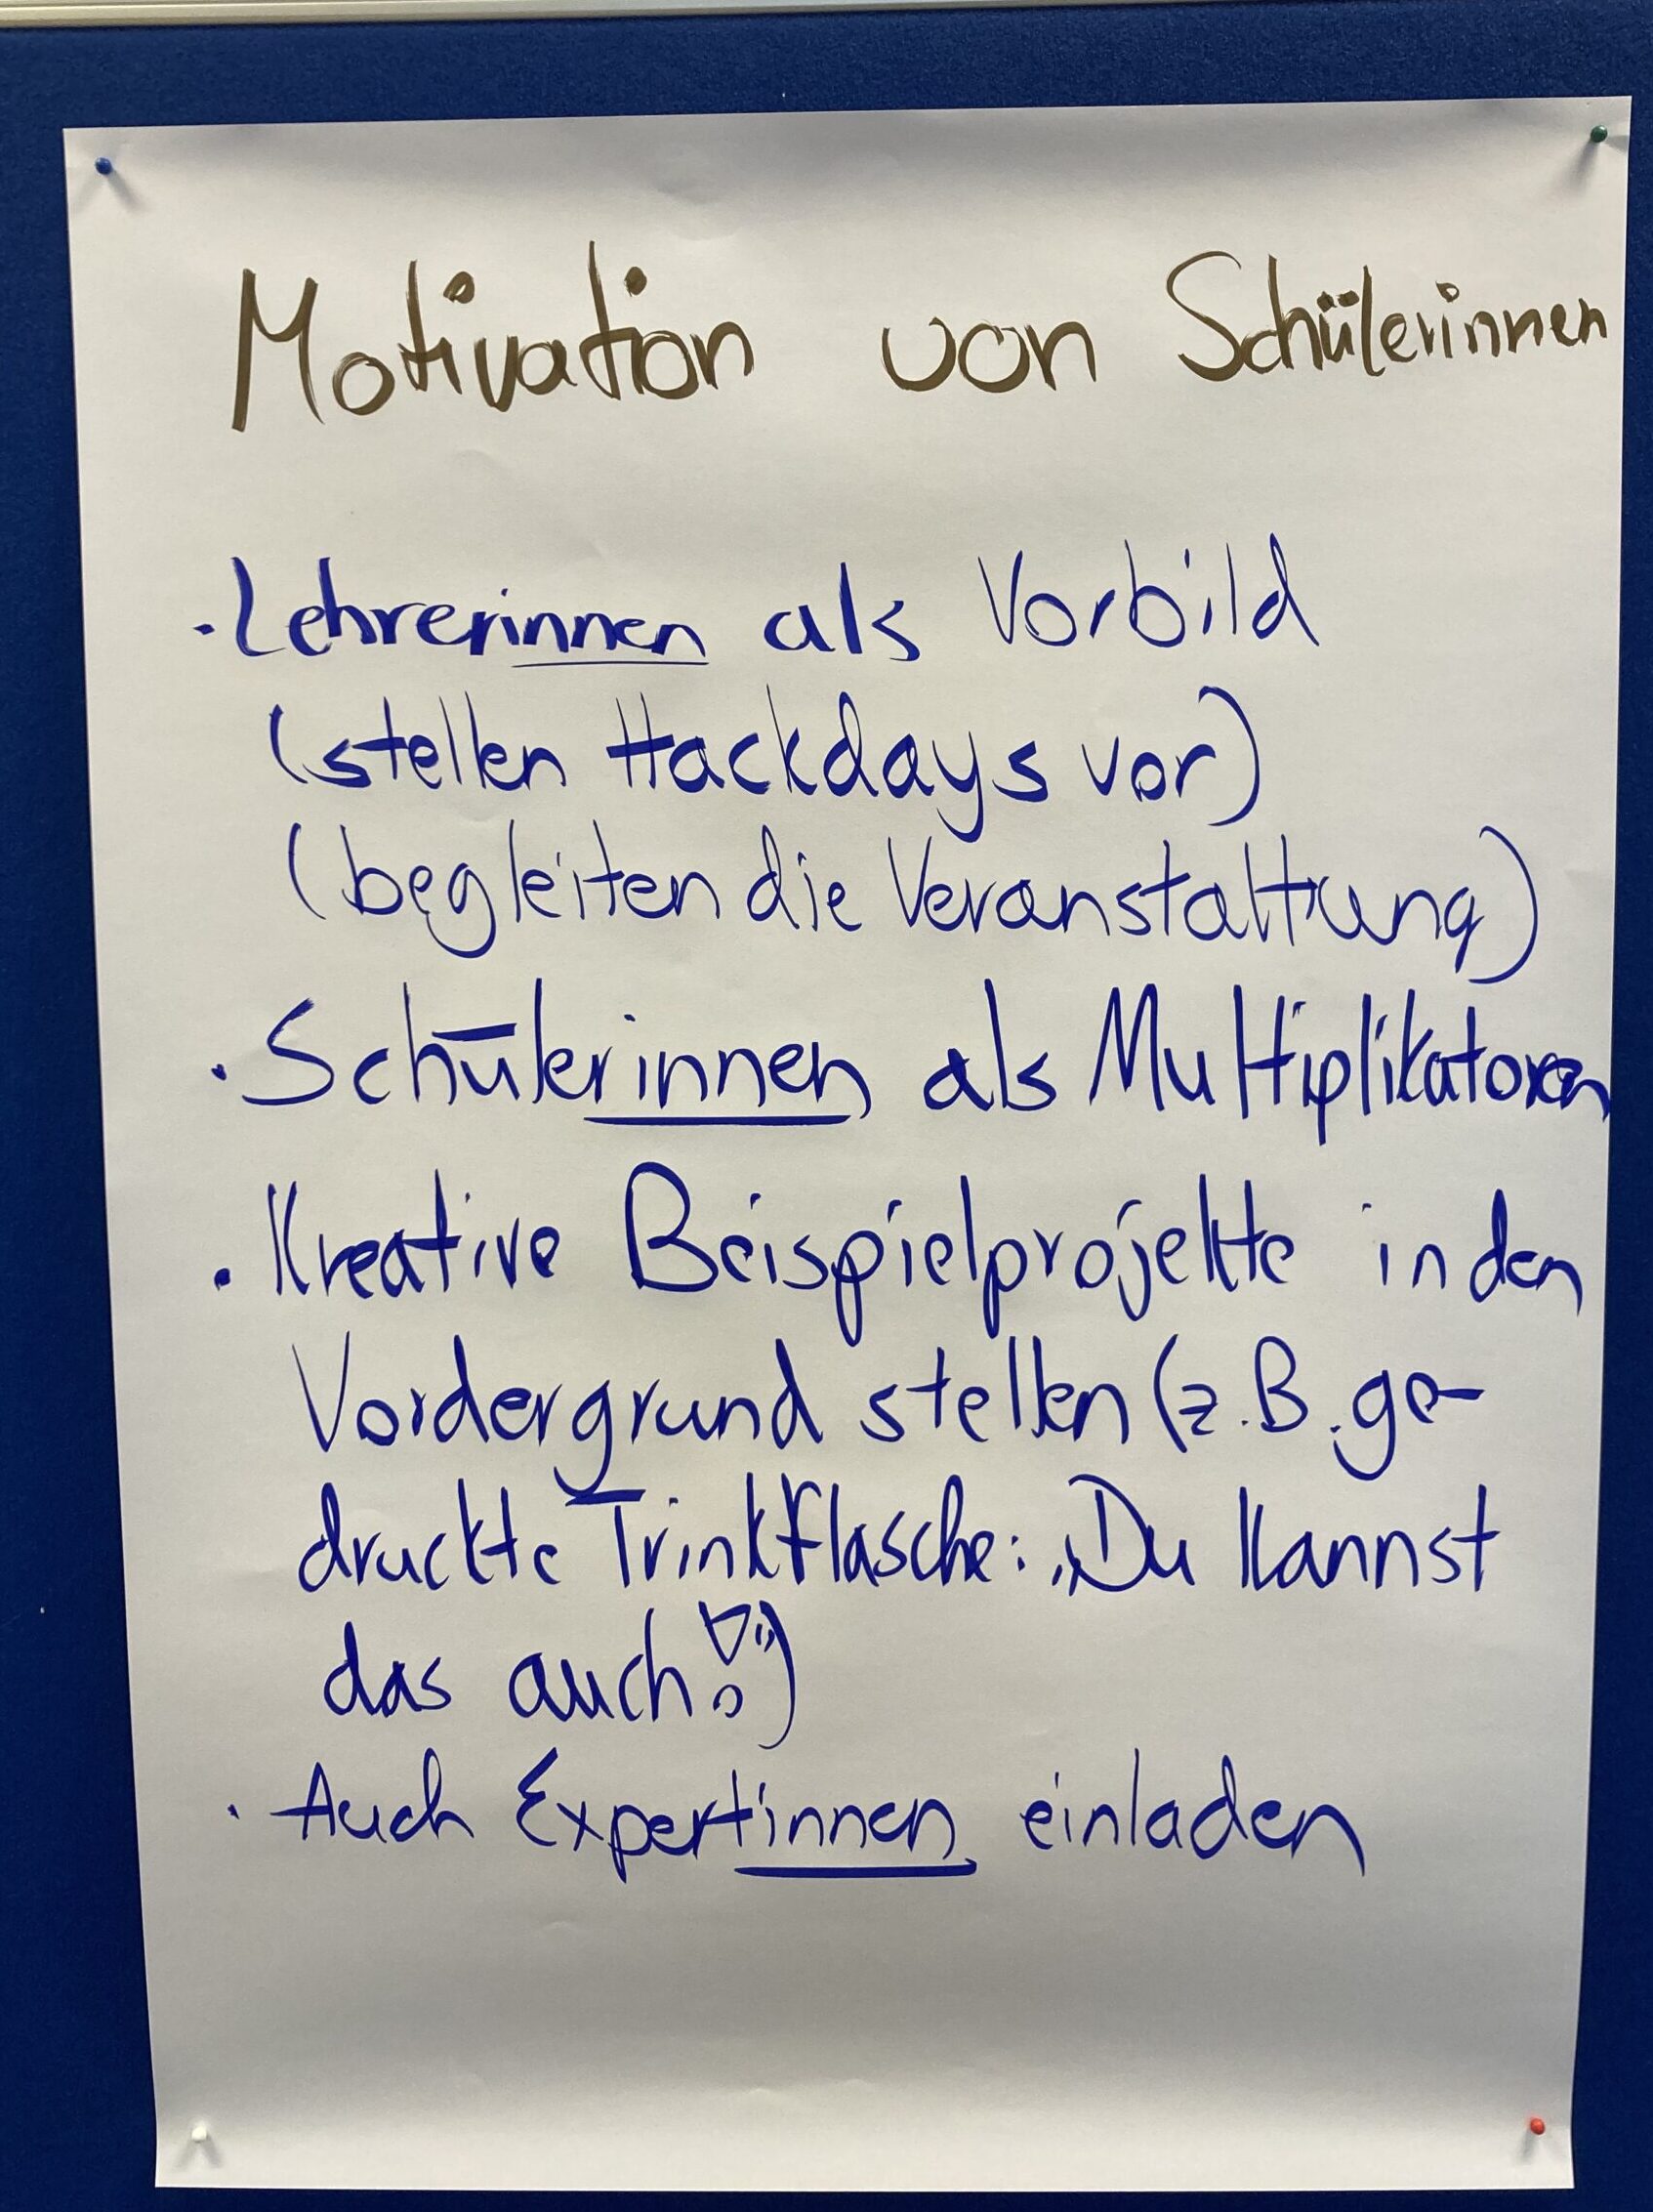 Motivation von Schülerinnen
· Lehrerinnen als Vorbild
(stellen Hackdays vor)
(begleiten die Veranstaltung)
· Schülerinnen als Multiplikatoren
· Kreative Beispielprojekte in den
Vordergrund stellen (z.B. ge-
druckte Trinkflasche: „Du kannst
das auch!")
· Auch Expertinnen einladen